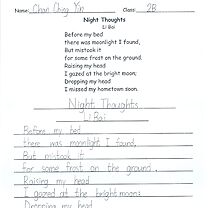 Name: Chan Ching Yin Class: 2B
Night Thoughts
Li Bai
Before my bed
there was moonlight I found,
But mistook it
for some frost on the ground.
Raising my head
I gazed at the bright moon;
Dropping my head
I missed my hometown soon.
Night Thoughts
Li Bai
Before my bed
there was moonlight I found,
But mistook it
for some frost on the ground.
Raising my head
I gazed at the bright moon;
Dropping my head